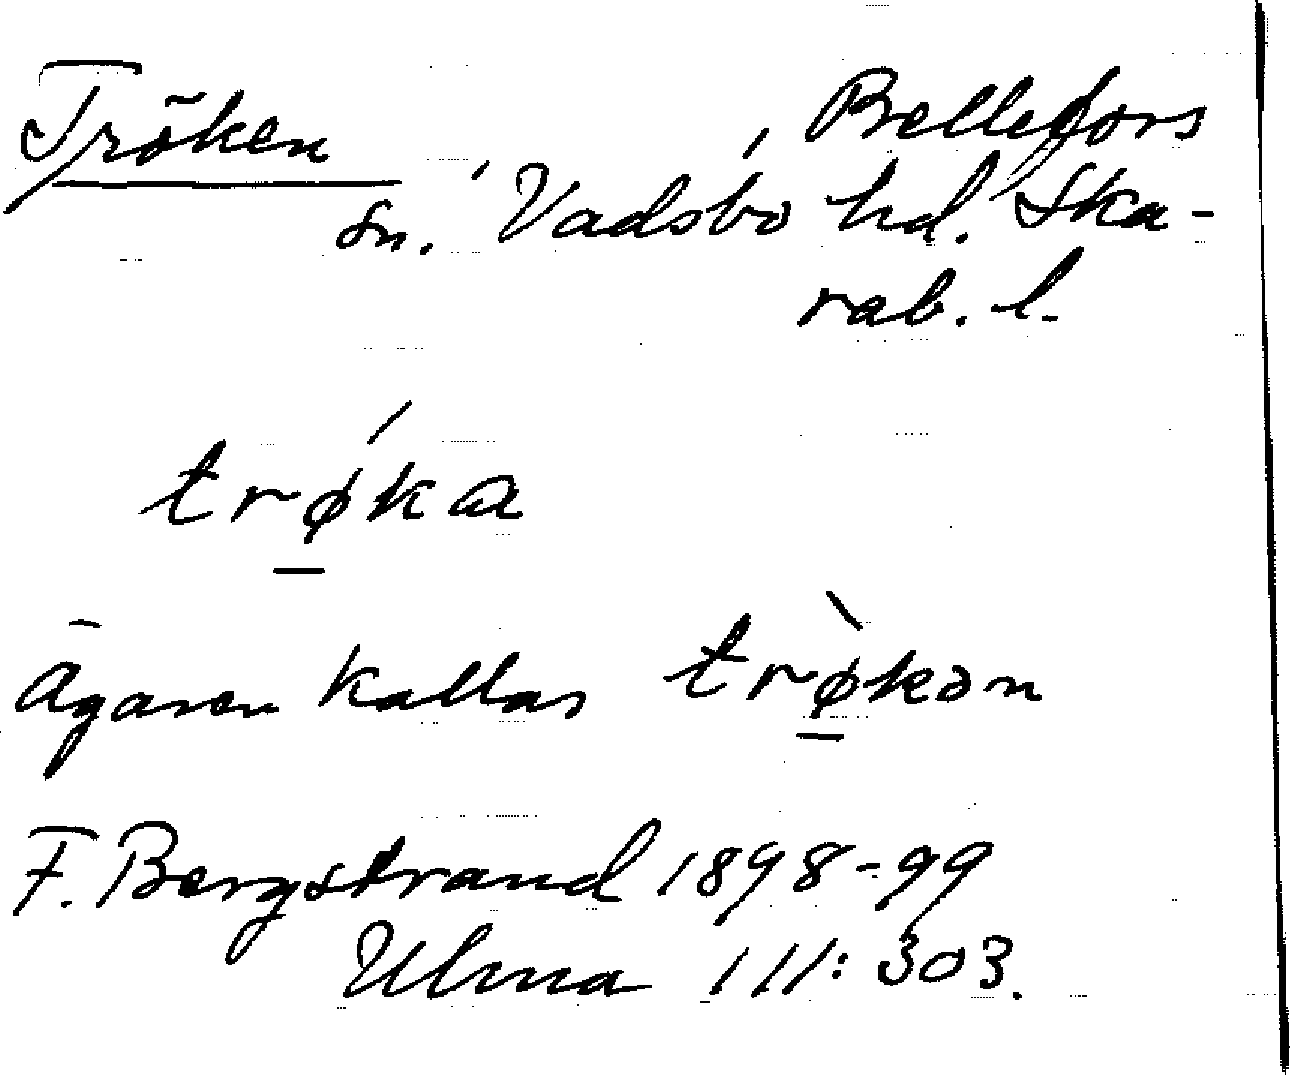 Tröken, Bellefors
sn., Vadsbo hd. Ska-
rab. l.
trǿka
Ägaren kallas trø̀kən
F. Bergstrand 1898-99
Ulma 111:303.